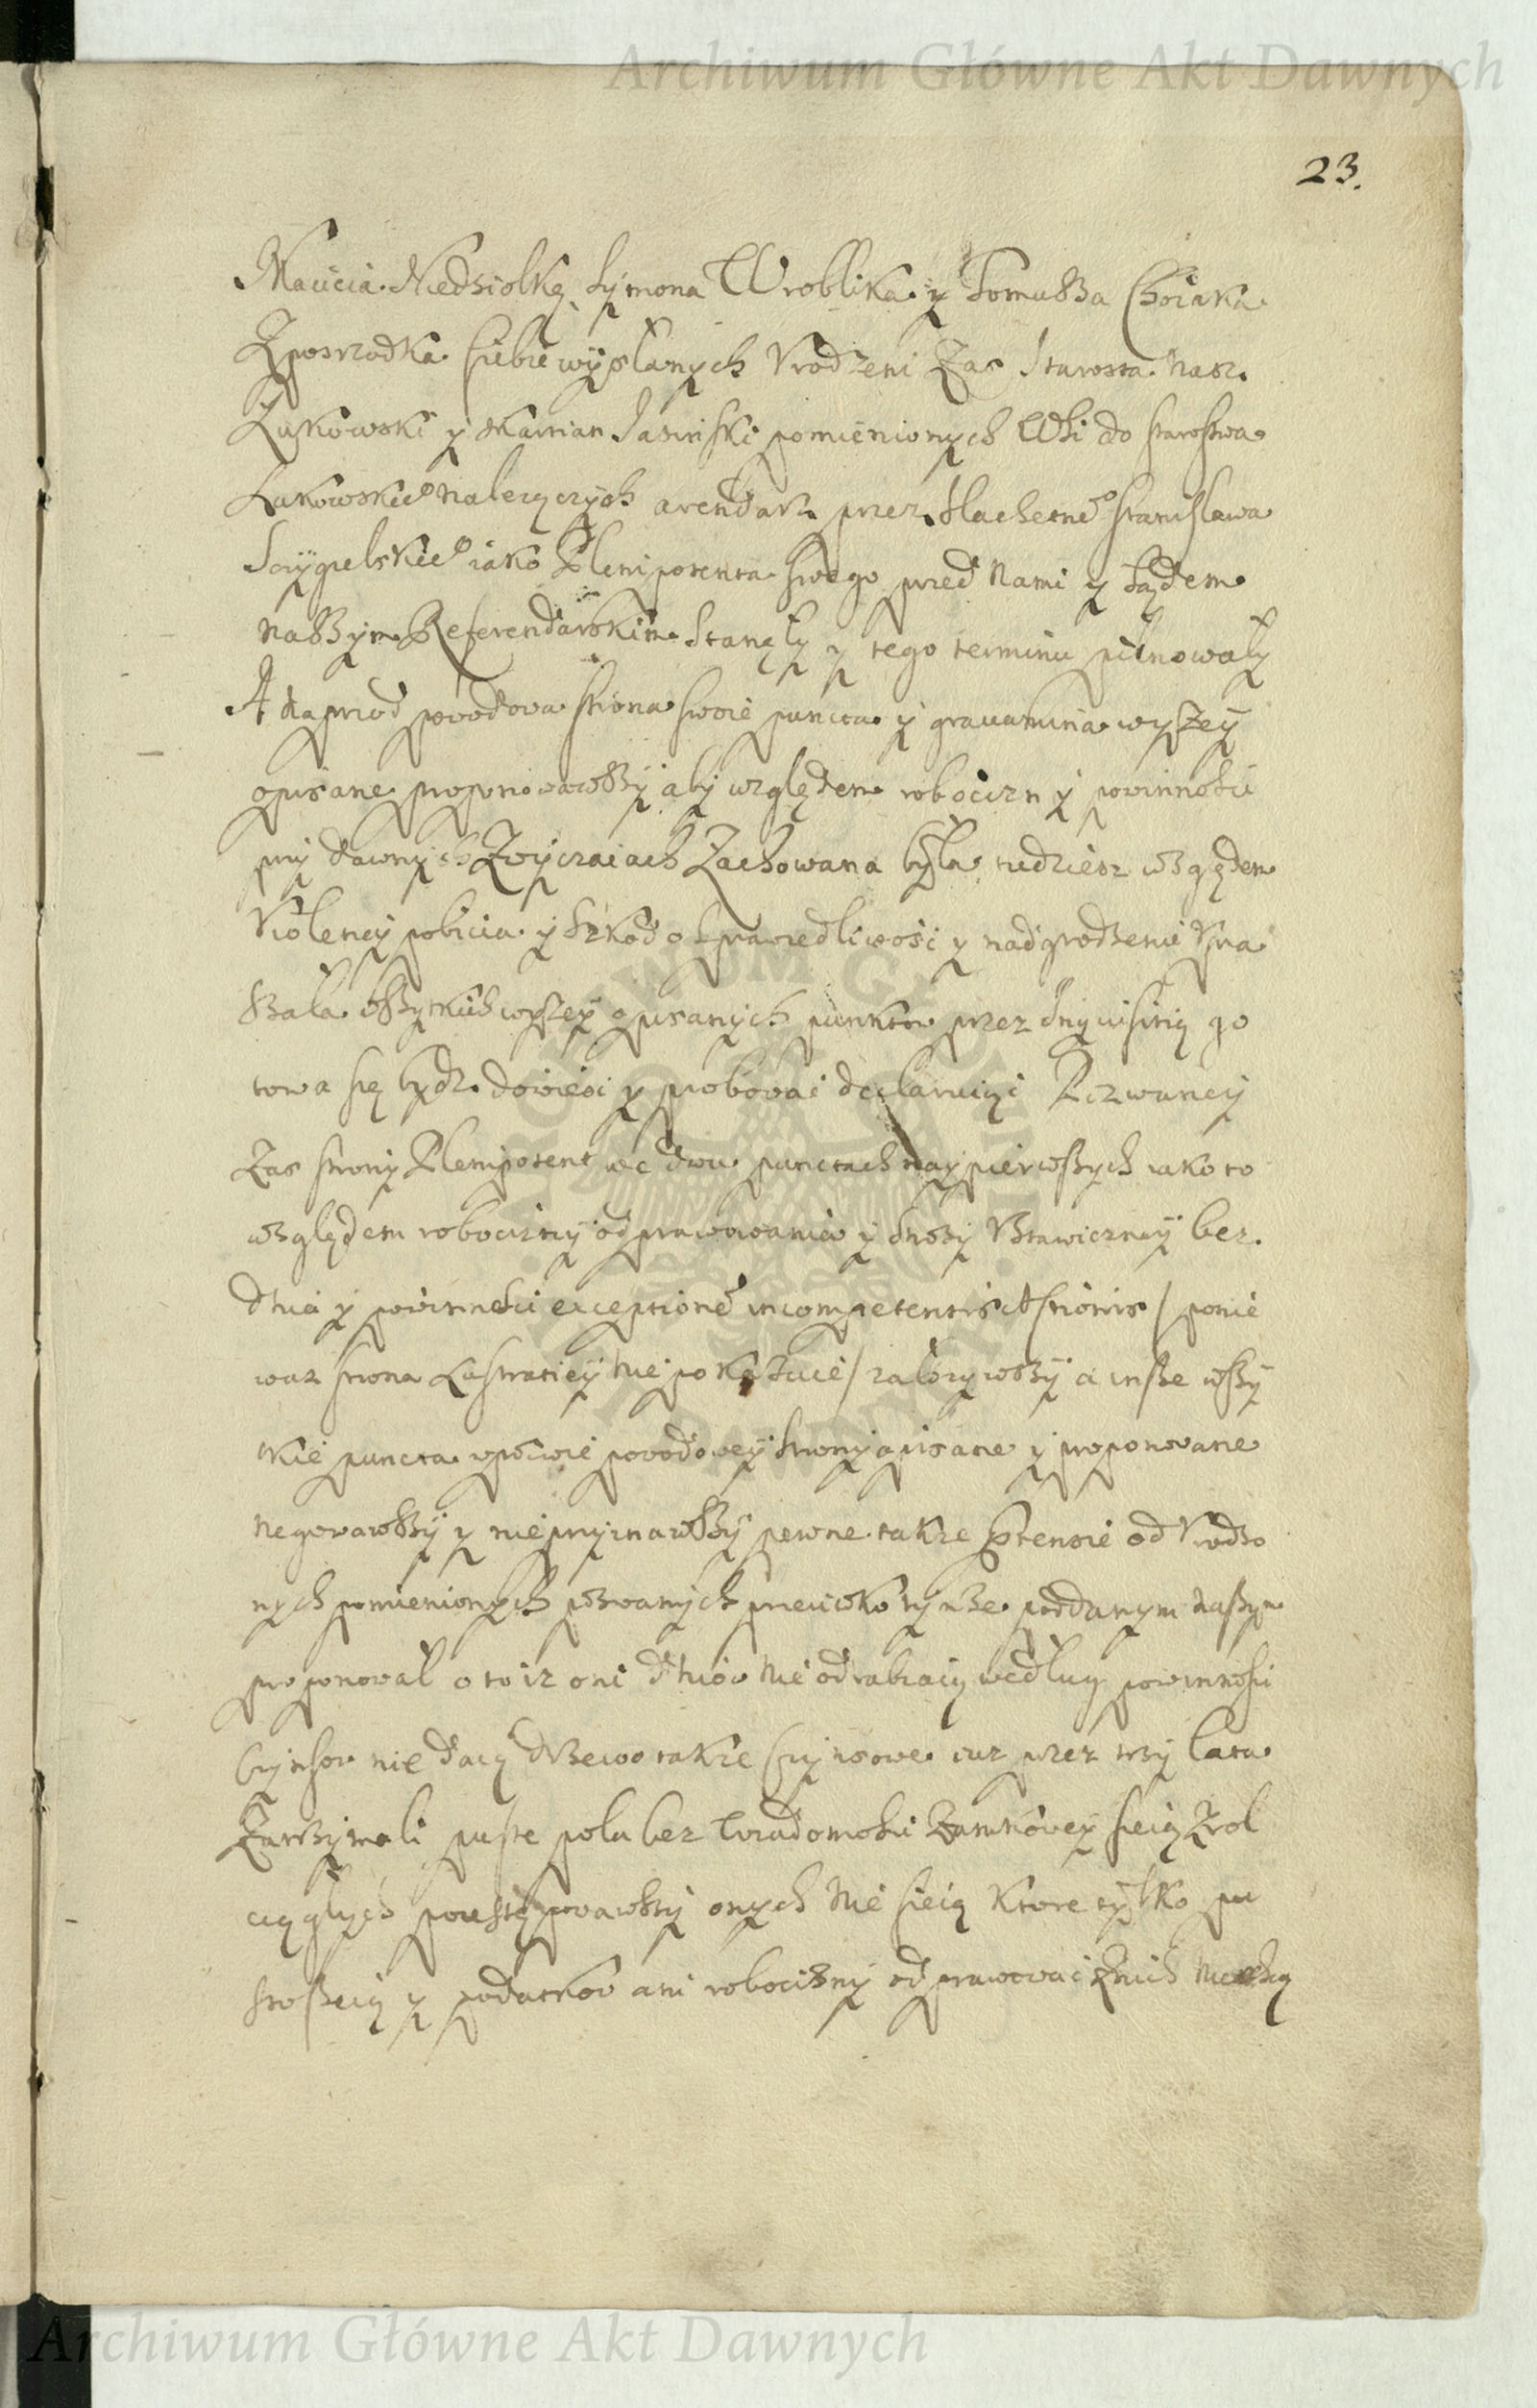 Archiwum Główne Akt Dawnych
23.
Macieia Niedziolkę, Symona Wroblika y Tomasza Chociaka
Zposrodka siebie wysłanych Vrodzeni Zas Starosta nasz
Łukowski y Marcian Jasinski pomienionych Wsi do starostwa
Łukowskieo nalezączych arendarz przez Slachetneo Stanisława
Sczygielskieo iako Plenipotenta swego przed Nami y Sądem
naszym Referendarskim Stanęły y tego terminu pilnowały
A naprzod powodowa strona swoie puncta y grauamina wyszey
opisane proponowawszy aby względem robocizn y powinnosci
przy dawnych Zwyczaiach Zachowana była, tudziesz względem
Violency pobicia y szkod o sprawiedliwosci y nadgrodzenie Vpra
szała wszytkich wyszey opisanych punktow przez Inquisitią go
towa się bydz dowiesc y probowac declaruiąc Pozwaney
Zas strony Plenipotent we dwu punctach naypierwszych iako to
względem robocizny odprawowania y strozy Vstawiczney bez
dnia y powinnosci exceptioneo incompetentis Actionis / ponie
waz strona Lustratiey nie pokazuie / załozywszy a insze wszy
tkie puncta wpozwie powodowey strony opisane y proponowane
negowawszy y nieprzyznawszy pewne takze Prtensie od Vrodzo
nych pomienionych pozwanych przeciwko tymze poddanym naszym
proponował o to iz oni dniow nie odrabiaią według powinnosci
Czynszow nie daią drzewo takze Czynszowe iuz przez trzy lata
Zatrzymali puste pola bez wiadomosci Zamkowey sieią Zrol
ciągłych powstępowawszy onych nie sieią ktore tylko pu
stoszeią y podatkow ani robocizny odprawowac znich niechcą
Archiwum Główne Akt Dawnych